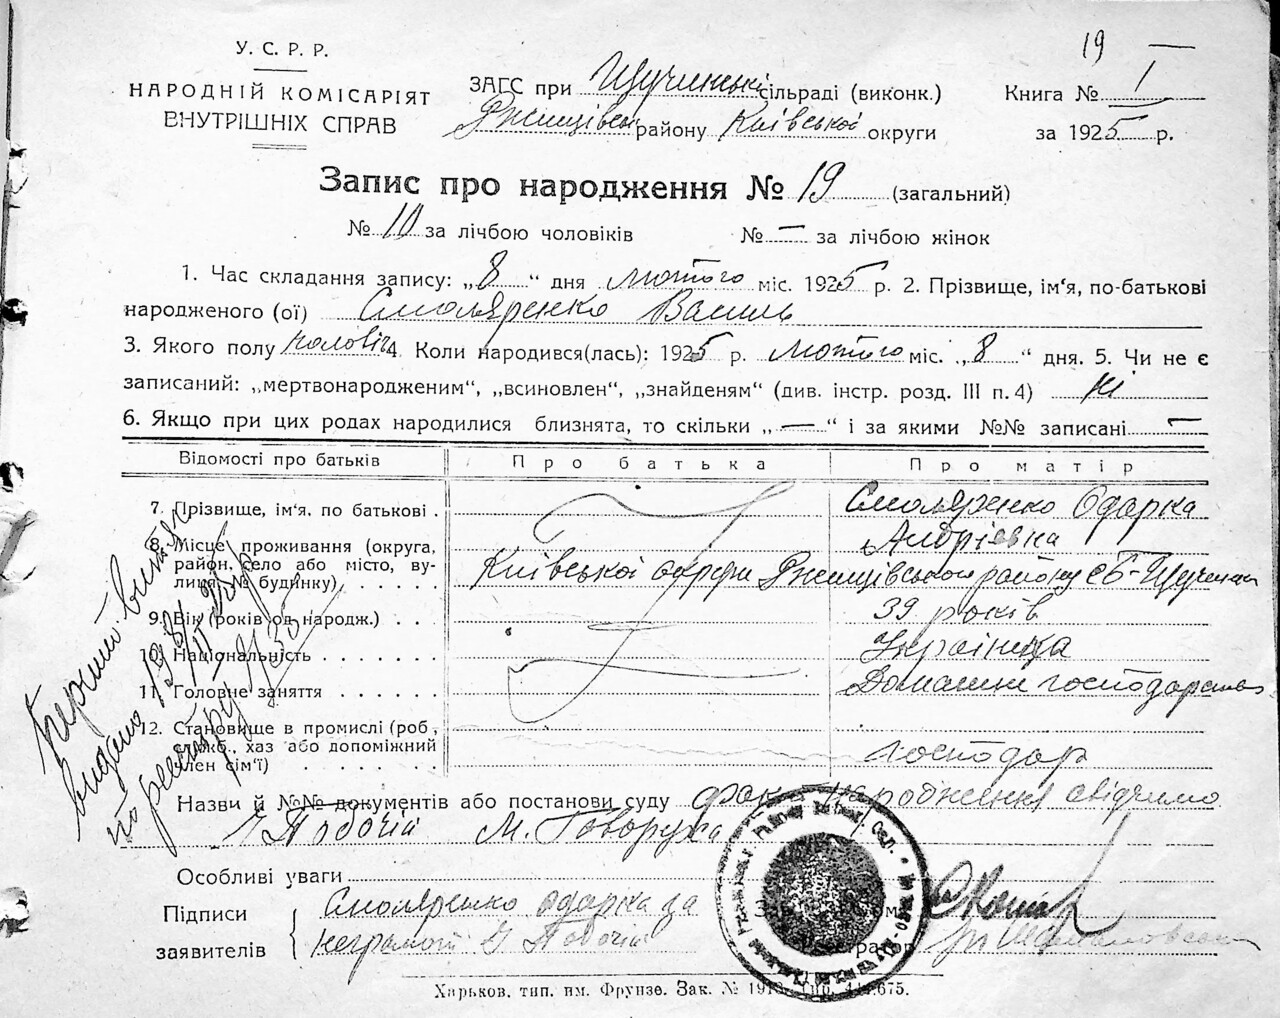 19 —
У. С. Р. Р.
НАРОДНІЙ КОМІСАРІЯТ
ВНУТРІШНІХ СПРАВ
ЗАГС при Щучинські сільраді (виконк.)
Ржищівськ району Київської округи
Книга № I
за 1925 р.
Запис про народження № 19 (загальний)
№ 10 за лічбою чоловіків № — за лічбою жінок
1. Час складання запису: „8“ дня лютого міс. 1925 р. 2. Прізвище, ім‘я, по-батькові
народженого (ої) Смоляренко Василь
3. Якого полу чоловіч 4. Коли народився(лась): 1925 р. лютого міс. „8“ дня. 5. Чи не є
записаний: „мертвонародженим“, „всиновлен“, „знайденям“ (див. інстр. розд. III п. 4) ні
6. Якщо при цих родах народилися близнята, то скільки „—“ і за якими №№ записані —
Відомості про батьків Про батька Про матір
7. Прізвище, ім‘я, по батькові . Смоляренко Одарка
Андріевна
8. Місце проживання (округа,
район, село або місто, ву-
лиця, № будинку) . . . Київської округи Ржищівського району с Щучинка
9. Вік (років од народж.) . . . 39 років
10. Національність . . . . . . Українка
11. Головне заняття . . . . . Домашне господарство
12. Становище в промислі (роб.,
служб., хаз або допоміжний
член сім‘ї) . . . . . . господар
Перший витяг
видано
по реєстру №
Назви й №№ документів або постанови суду факт народження свідчимо
Побочій М. Говоруха
Особливі уваги
Підписи
заявителів
Смоляренко Одарка за
неграмот Побочій
Зав.
Реєстратор
Харьков, тип. им. Фрунзе. Зак. №